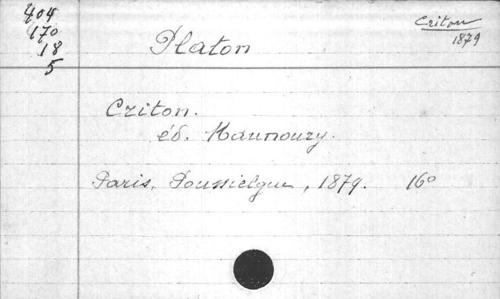 404
170
18
5
Criton
1879
Platon
Criton.
éd. Maunoury.
Paris, Poussielgue, 1879. 16°